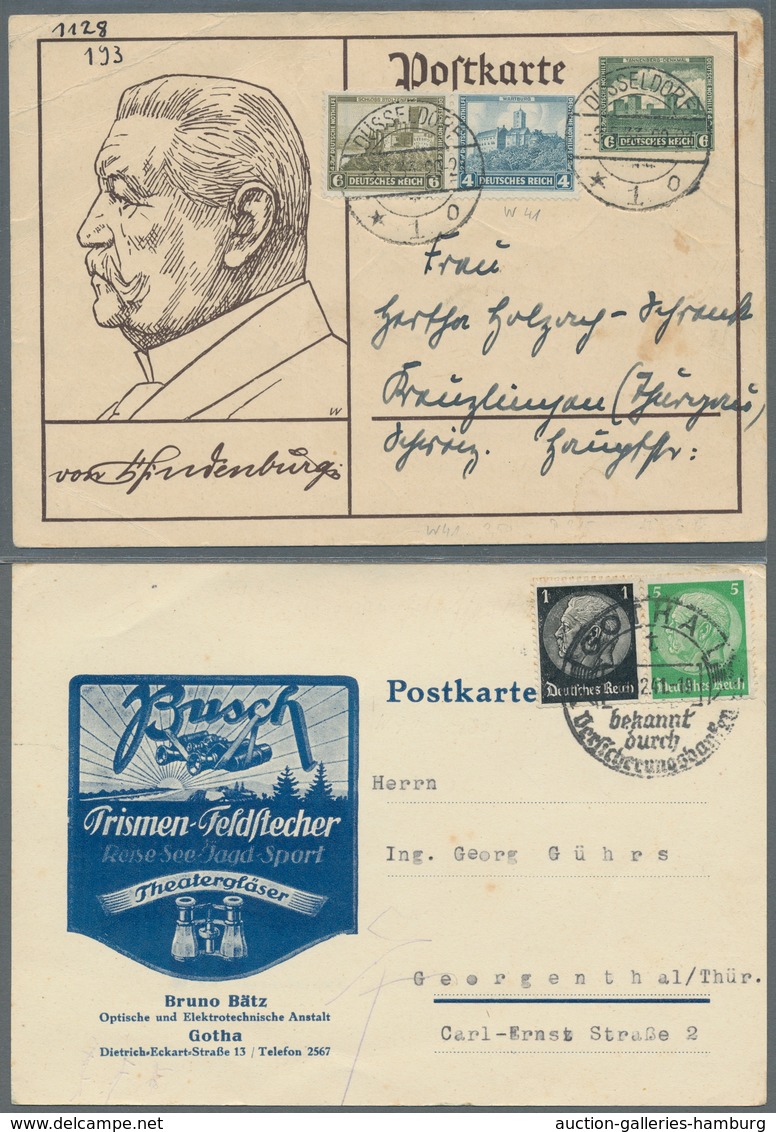 1128
193
Postkarte
TANNENBERG-DENKMAL
6 DEUTSCHES REICH 6
WARTBURG
6 DEUTSCHES REICH 6
4 DEUTSCHES REICH 4
DÜSSELDORF
* 1 o
DÜSSELDORF
* 1 o
W 41
Frau
Hertha Holzach-Schrenk
Kreuzlingen (Thurgau)
Schweiz. Hauptstr:
W
von Hindenburg
W41
1 1
Deutsches Reich
5 5
Deutsches Reich
GOTHA
bekannt
durch
Versicherungsbanken
Postkarte
Busch
Prismen-Feldstecher
Reise-See-Jagd-Sport
Theatergläser
Bruno Bätz
Optische und Elektrotechnische Anstalt
Gotha
Dietrich-Eckart-Straße 13 / Telefon 2567
Herrn
Ing. Georg Gührs
Georgenthal/Thür.
Carl-Ernst Straße 2
auction-galleries-hamburg